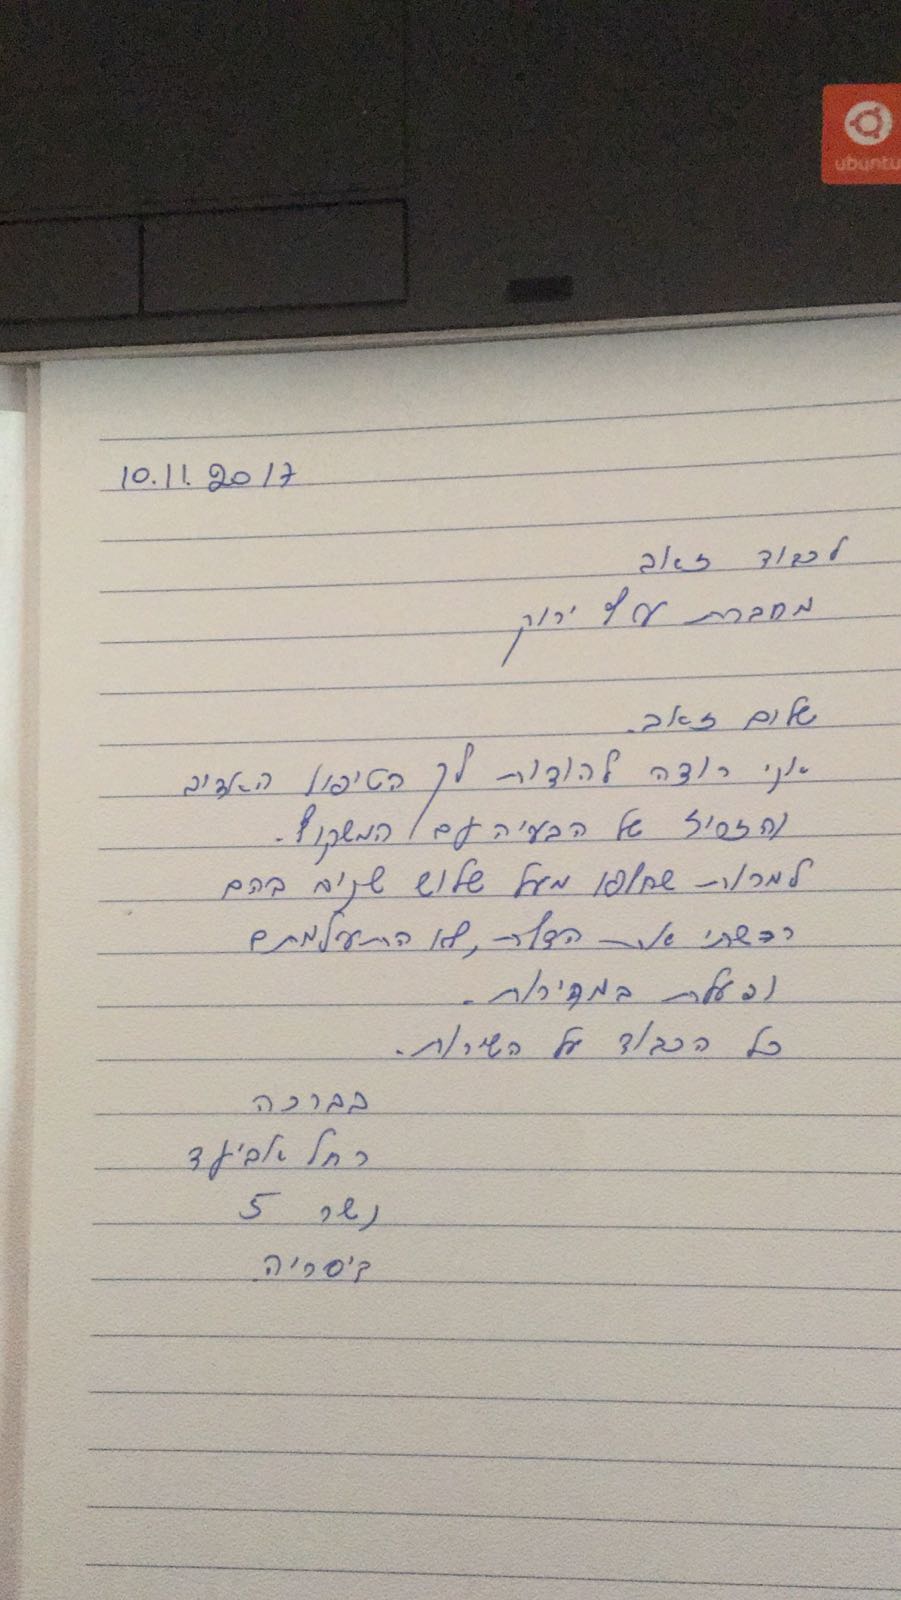 ubuntu
10.11.2017
לכבוד זאב
מחברת עץ ירוק
שלום זאב.
אני רוצה להודות לך הטיפול האדיב
של הבעיה עם המשקוף.
למרות שחלפו מעל שלוש שנים בהם
רכשתי את הדלת, לא התעלמתם
ופעלת במהירות.
כל הכבוד על השירות.
בברכה
רחל אביעד
נשר 5
קיסריה